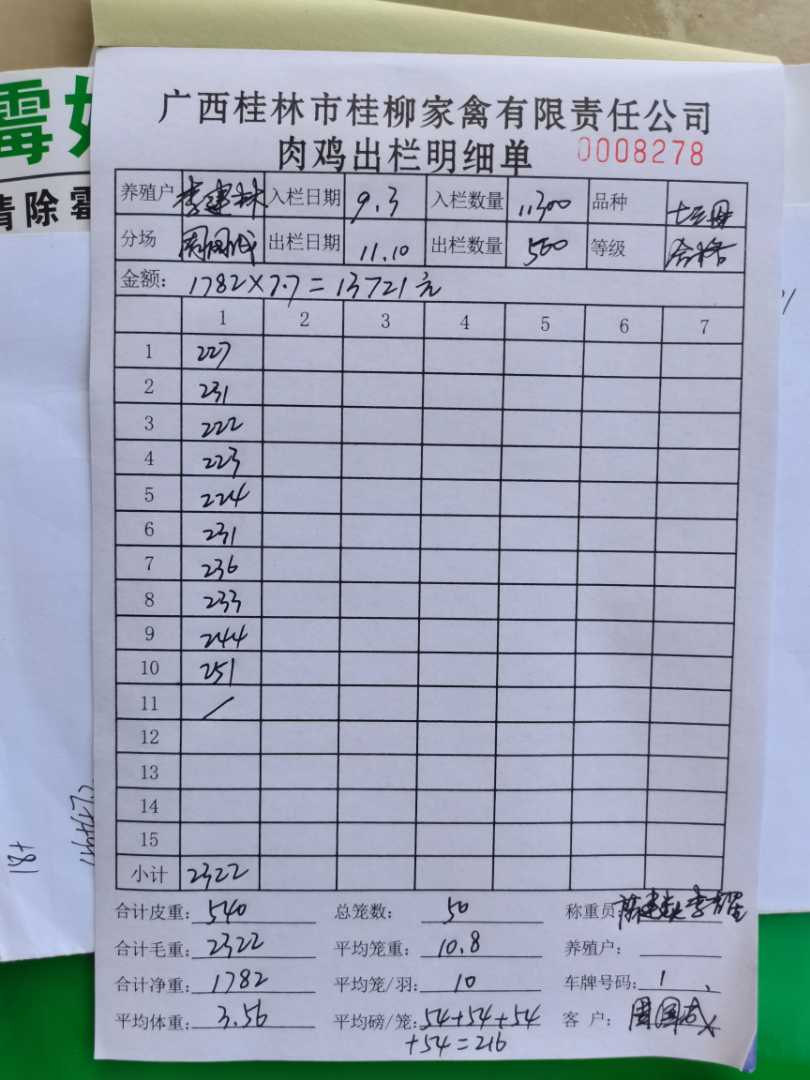 霉
清除霉
广西桂林市桂柳家禽有限责任公司
肉鸡出栏明细单 0008278
养殖户 李建林 入栏日期 9.3 入栏数量 11300 品种 土三母
分场 周国成 出栏日期 11.10 出栏数量 500 等级 合格
金额: 1782×7.7=13721元
1 2 3 4 5 6 7
1 227
2 231
3 222
4 223
5 224
6 231
7 236
8 233
9 244
10 251
11 /
12
13
14
15
小计 2322
合计皮重: 540 总笼数: 50 称重员:
合计毛重: 2322 平均笼重: 10.8 养殖户:
合计净重: 1782 平均笼/羽: 10 车牌号码: 1
平均体重: 3.56 平均磅/笼: 54+54+54 客 户: 周国成
+54=216
18+